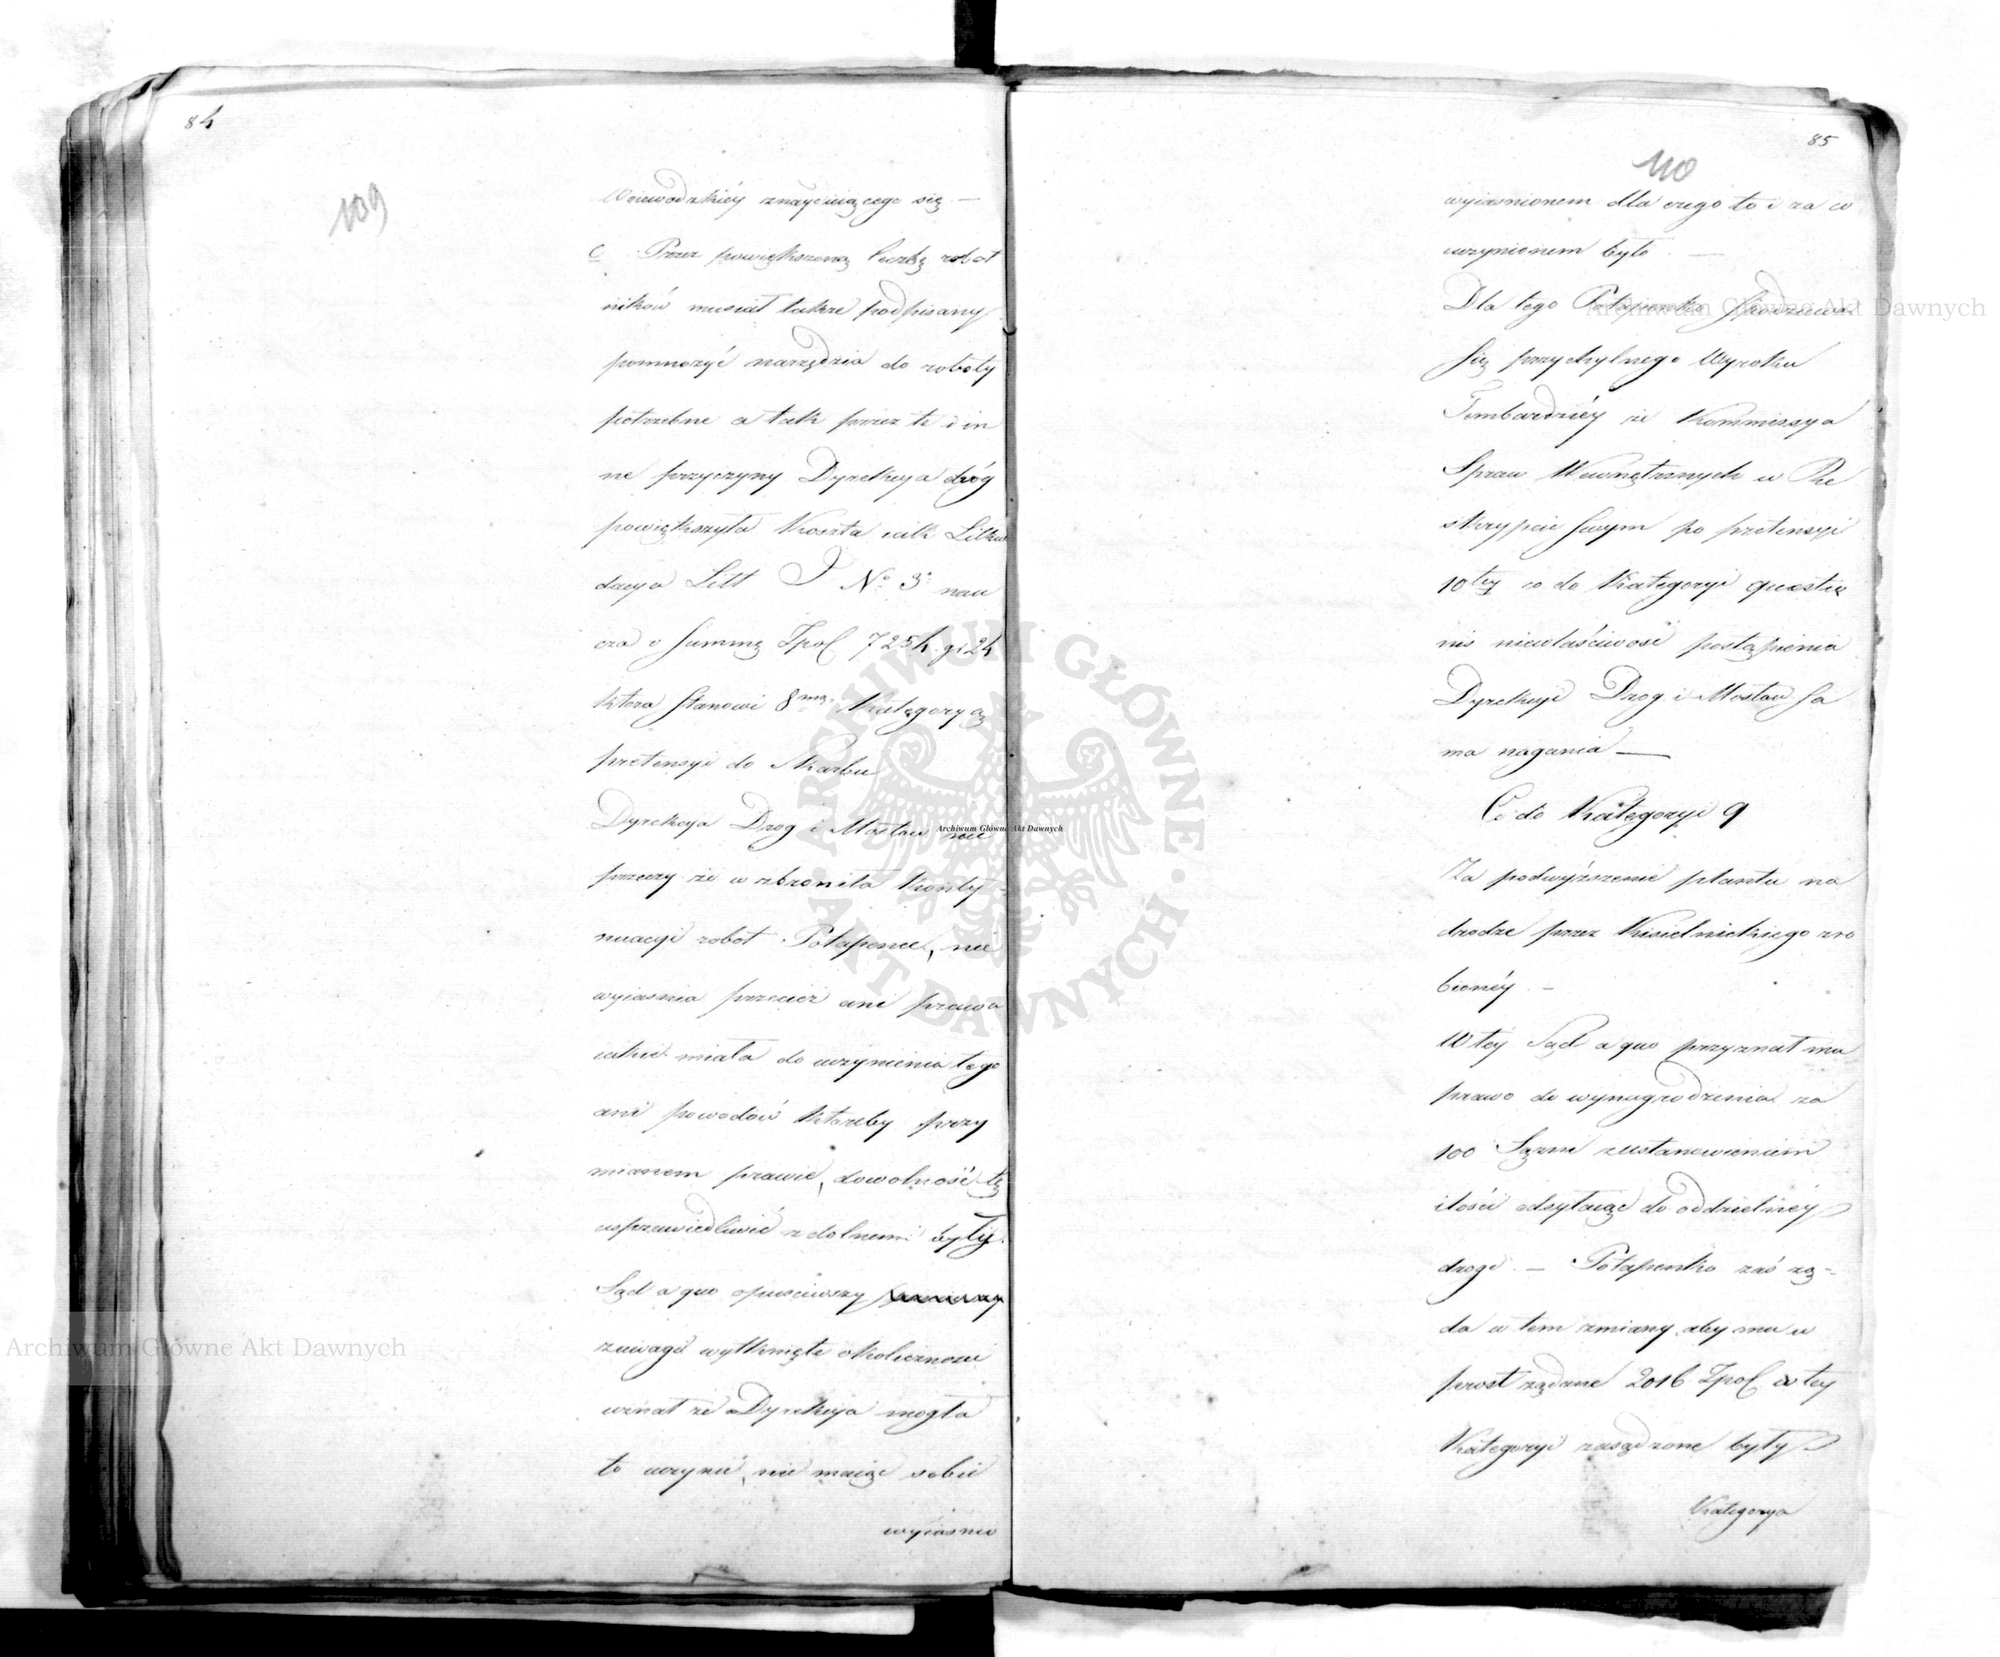 84
109
Woiewodzkiéy znayduiącego się —
c Przez powiększoną liczbę robot
ników musiał także podpisany
pomnożyć narzędzia do roboty
potrzebne a tak przez te i in
ne przyczyny Dyrekcya dróg
powiększyła Koszta iak Likwi
dacya Litt J No 3 nau
cza o Summę Zpol 7254 gr 24
która stanowi 8mą Kategoryą
pretensyi do Skarbu
Dyrekcya Drog i Mostow nie
przeczy że wzbroniła Konty
nuacyi robot Potapence, nie
wyiasnia przecież ani prawa
iakie miała do uczynienia tego
ani powodów któreby przy
mianem prawie, dowolność tę
usprawiedliwić zdolnemi były.
Sąd a quo opuściwszy
z uwagi wytknięte okoliczności
uznał że Dyrekcya mogła
to uczynić, nie maiąc sobie
wyiasnio
85
110
wyiasnionem dla czego to i za co
uczynionem było. —
Dla tego Potapenko spodziewa
się przychylnego Wyroku
Tembardziéy że Kommissya
Spraw Wewnętrznych w Re
skrypcie swym po pretensyi
10tey co do Kategoryi quaestio
nis niewłaściwość postąpienia
Dyrekcyi Drog i Mostow sa
ma nagania —
Co do Kategoryi 9
Za podwyższenie plantu na
drodze przez Kisielnickiego zro
bionéy. —
W tey Sąd a quo przyznał mu
prawo do wynagrodzenia za
100 Sążni z ustanowieniem
ilości odsyłaiąc do oddzielnéy
drogi. — Potapenko zaś żą=
da w tem zmiany, aby mu w
prost żądane 2016 Zpol w tey
Kategoryi zasądzone były
Kategorya
Archiwum Główne Akt Dawnych
Archiwum Główne Akt Dawnych
Archiwum Główne Akt Dawnych
ARCHIWUM GŁÓWNE · AKT DAWNYCH ·